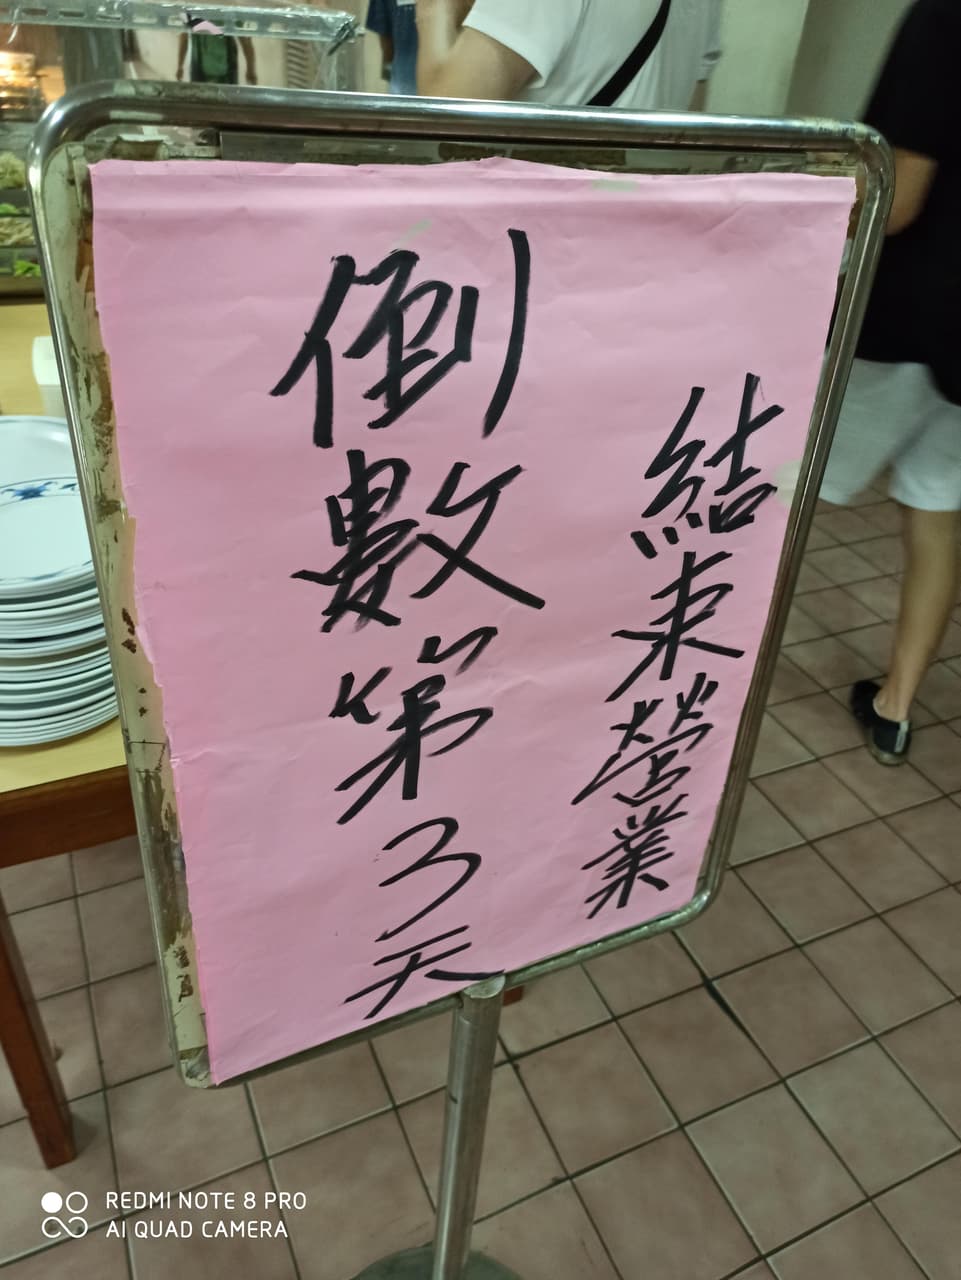 結束營業
倒數第3天
REDMI NOTE 8 PRO
AI QUAD CAMERA